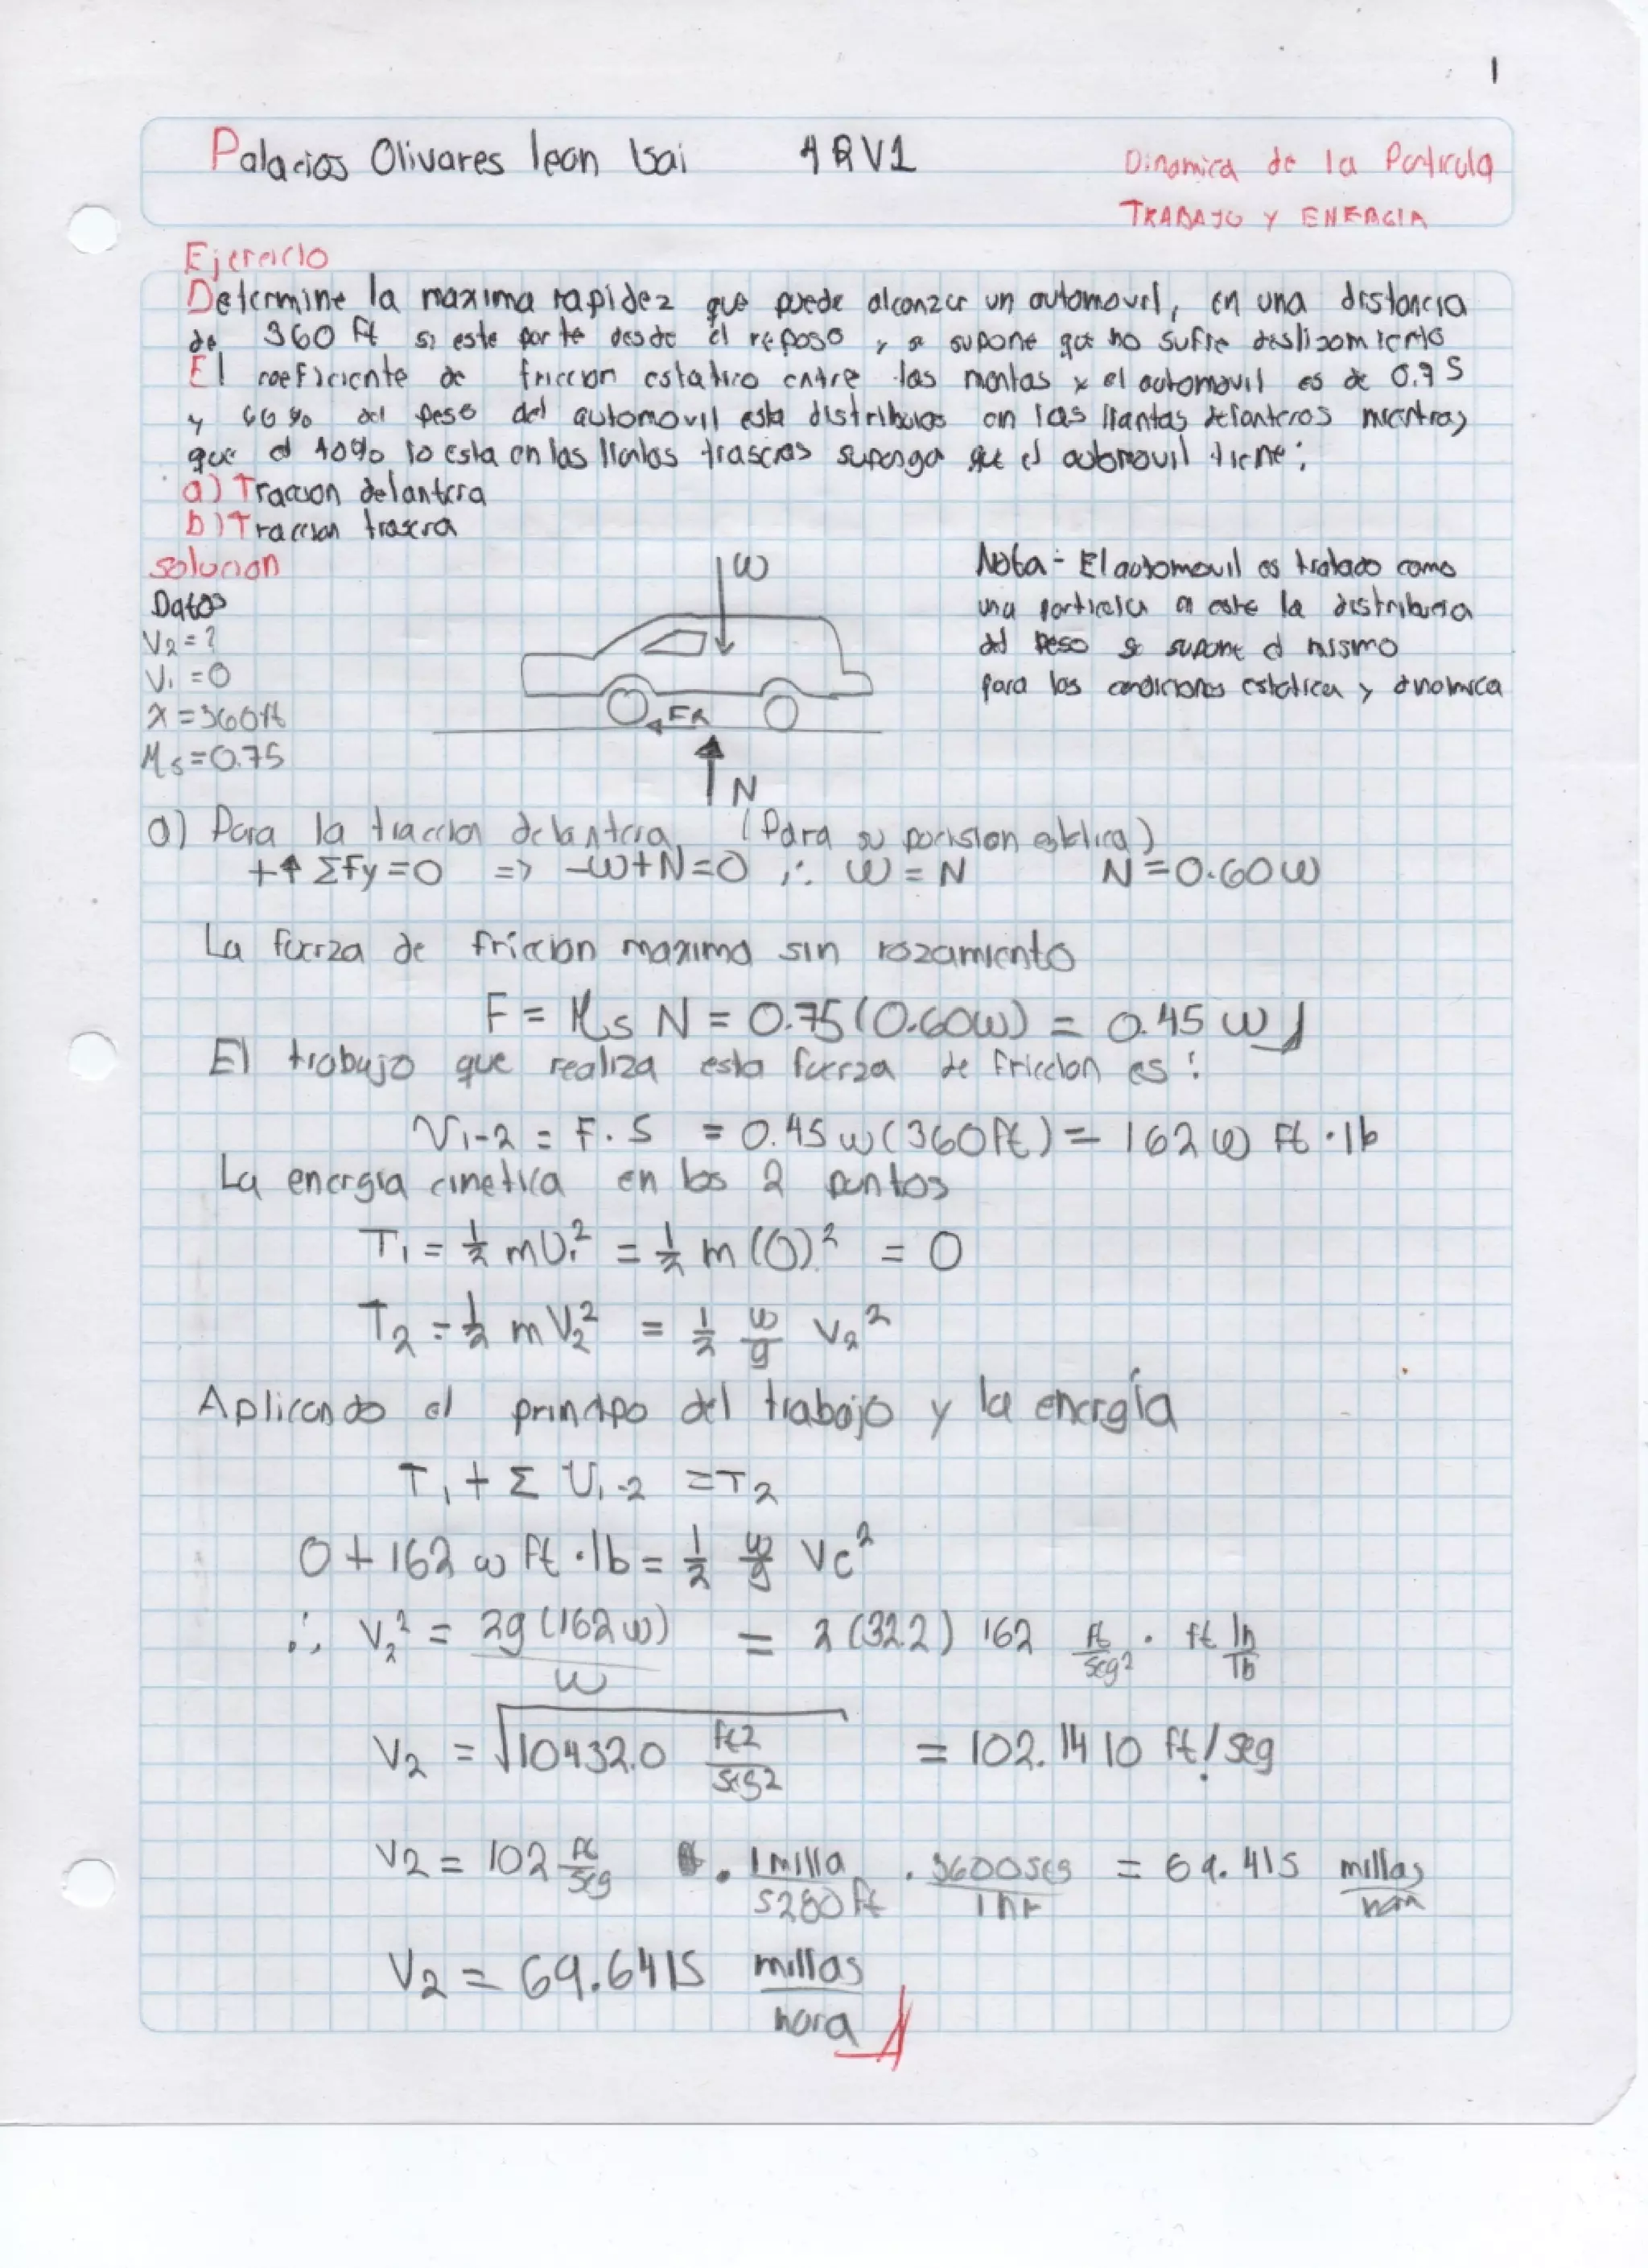 1
Palacios Olivares leon Isai 4RV1
Dinamica de la Particula
TRABAJO Y ENERGIA
Ejercicio
Determine la maxima rapidez que puede alcanzar un automovil, en una distancia
de 360 ft si este parte desde el reposo y se supone que no sufre deslizamiento
El coeficiente de friccion estatico entre las mantas y el automovil es de 0.75
y 60% del peso del automovil esta distribuido en las llantas delanteras mientras
que el 40% lo esta en las llantas traseras suponga que el automovil tiene:
a) Traccion delantera
b) Traccion trasera
solucion
Datos
V2 = ?
V1 = 0
x = 360 ft
Ms = 0.75
W
FR
N
Nota - El automovil es tratado como
una particula en este la distribucion
del peso se supone el mismo
para las condiciones estatica y dinamica
a) Para la traccion delantera (Para su posision estatica)
+↑ ΣFy = 0 => -W + N = 0 ∴ W = N N = 0.60W
La fuerza de friccion maxima sin rozamiento
F = Ms N = 0.75 (0.60W) = 0.45 W
El trabajo que realiza esta fuerza de friccion es:
V1-2 = F · S = 0.45 W (360ft) = 162 W ft · lb
La energia cinetica en los 2 puntos
T1 = 1/2 mV1² = 1/2 m (0)² = 0
T2 = 1/2 m V2² = 1/2 W/g V2²
Aplicando el principo del trabajo y la energía
T1 + Σ U1-2 = T2
0 + 162 W ft · lb = 1/2 W/g VC²
∴ V2² = 2g (162 W)/W = 2 (32.2) 162 ft/seg² · ft lb/lb
V2 = √10432.0 ft2/seg2 = 102.1410 ft/seg
V2 = 102 ft/seg · 1 milla/5280 ft · 3600 seg/1 hr = 69.415 millas/hora
V2 = 69.6415 millas/hora